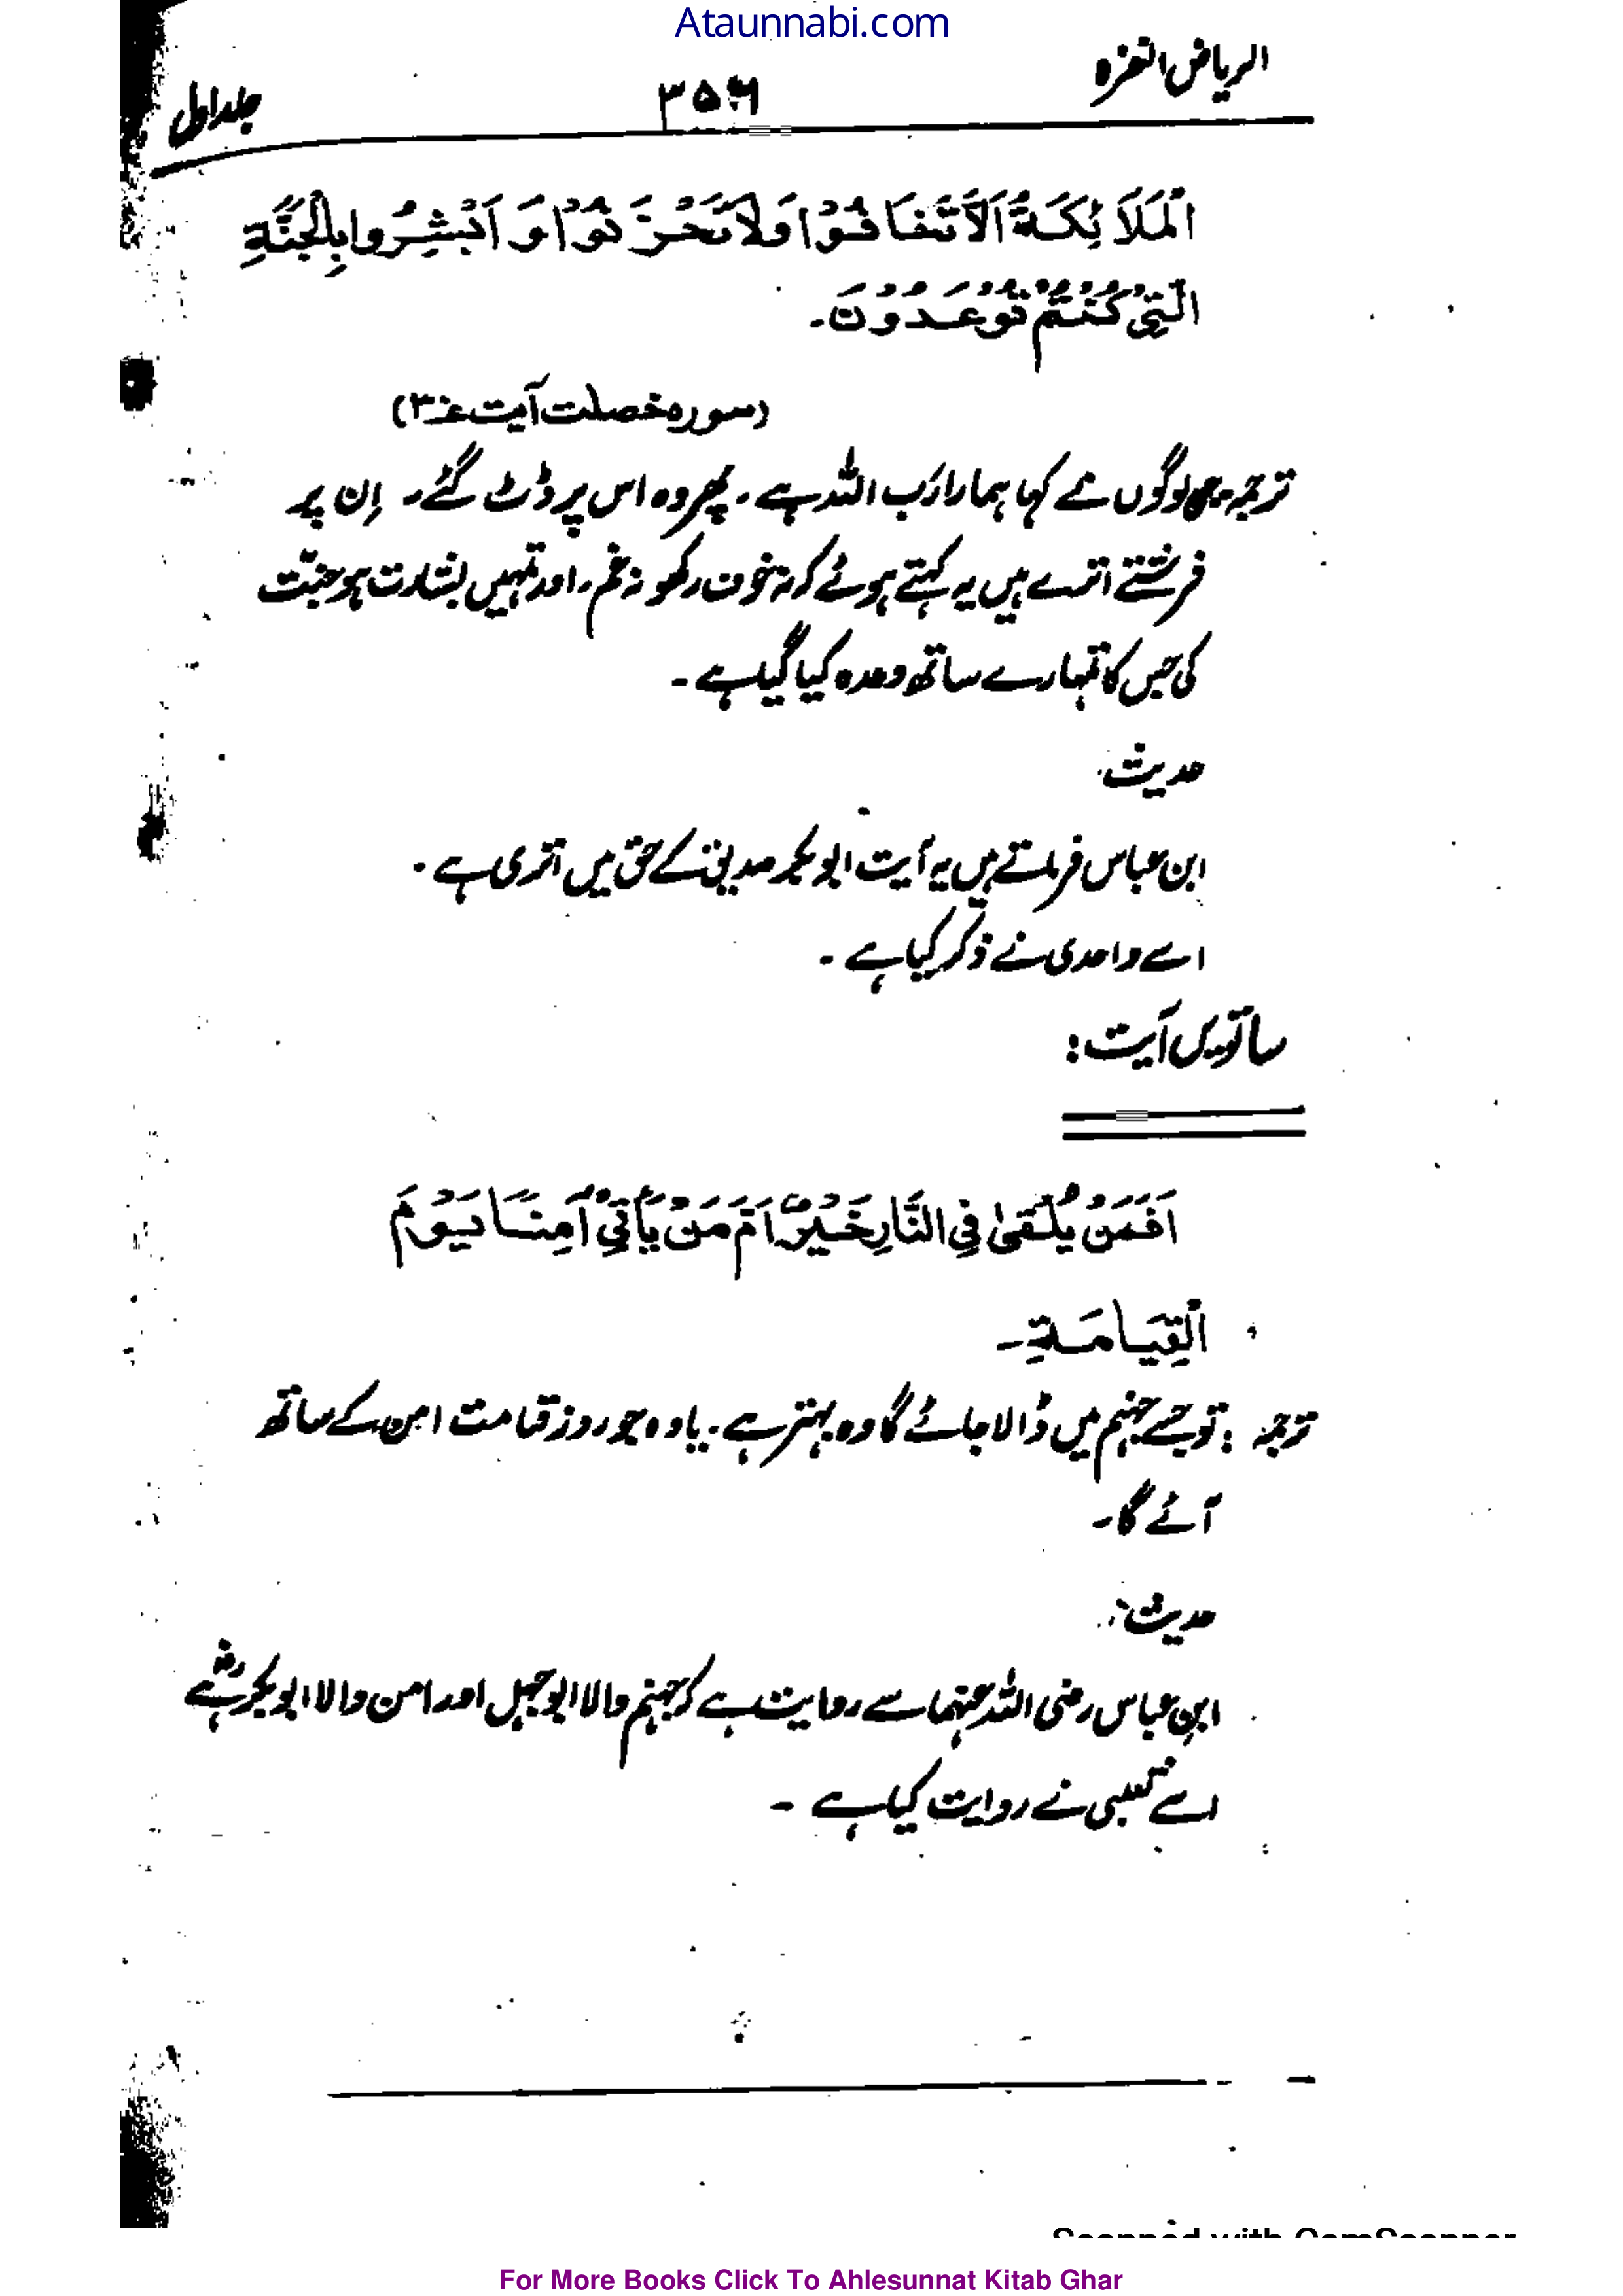 Ataunnabi.com
الریاض النضرہ
۳۵۶
جلد اول
الْمَلَائِكَةُ اَلَّا تَخَافُوْا وَلَا تَحْزَنُوْا وَ اَبْشِرُوا بِالْجَنَّةِ
الَّتِیْ كُنْتُمْ تُوْعَدُوْنَ۔
(سورہ خصلت آیت ۳۰)
ترجمہ۔ جن لوگوں نے کہا ہمارا رَب اللہ ہے۔ پھر وہ اس پر ڈٹ گئے۔ اِن پر
فرشتے اترے ہیں یہ کہتے ہوئے کہ نہ خوف رکھو نہ غم۔ اور تمہیں بشارت ہو جنّت
کی جس کا تمہارے ساتھ وعدہ کیا گیا ہے۔
حدیث:
ابن عباس فرماتے ہیں یہ آیت ابوبکر صدیق کے حق میں اتری ہے۔
اسے واحدی نے ذکر کیا ہے۔
ساتویں آیت:
اَفَمَنْ يُلْقٰى فِى النَّارِ خَيْرٌ اَمْ مَنْ يَأْتِىْ اٰمِنًا يَوْمَ
الْقِيَامَةِ۔
ترجمہ: تو جسے جہنم میں ڈالا جائے گا وہ بہتر ہے۔ یا وہ جو روز قیامت امن کے ساتھ
آئے گا۔
حدیث:
ابن عباس رضی اللہ عنہما سے روایت ہے کہ جہنم والا ابوجہل اور امن والا ابوبکرؓ ہے
اسے ثعلبی نے روایت کیا ہے۔
Scanned with CamScanner
For More Books Click To Ahlesunnat Kitab Ghar